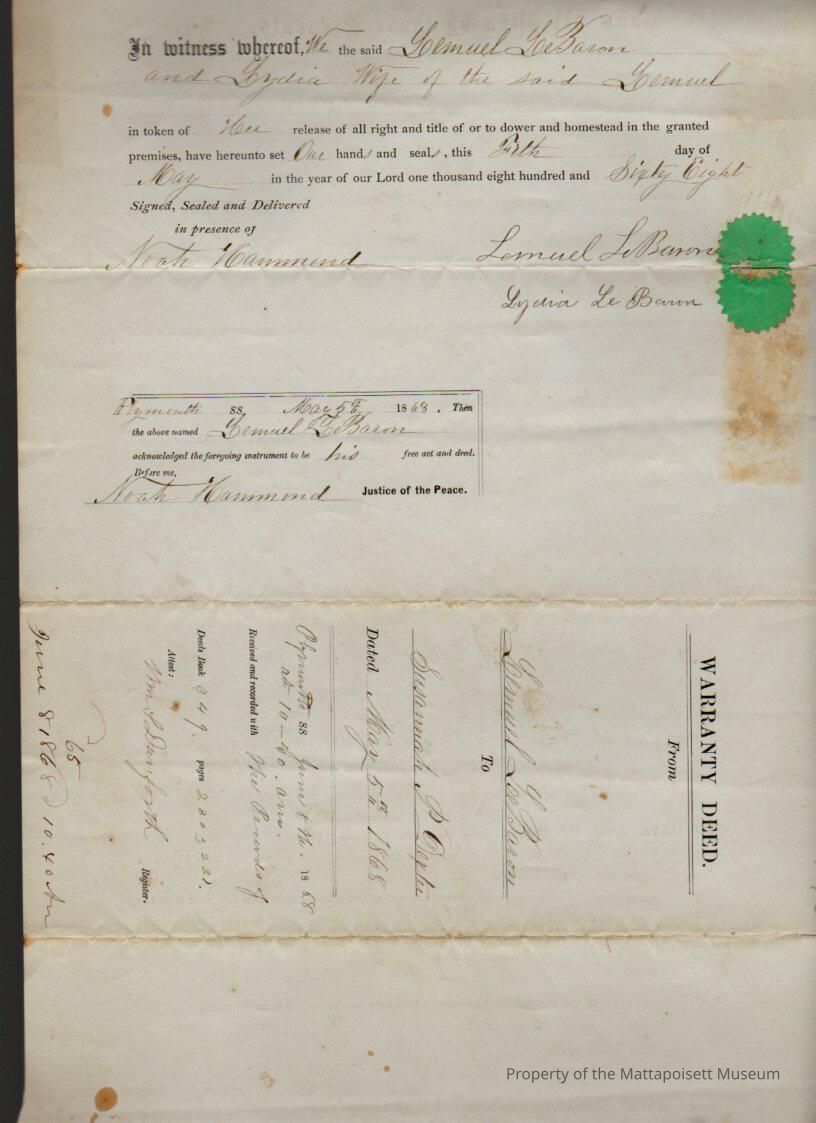 In witness whereof, We the said Lemuel LeBaron
and Lydia Wife of the said Lemuel
in token of Her release of all right and title of or to dower and homestead in the granted
premises, have hereunto set Our hands and seals, this Fifth day of
May in the year of our Lord one thousand eight hundred and Sixty Eight
Signed, Sealed and Delivered
in presence of
Noah Hammond Lemuel LeBaron
Lydia Le Baron
Plymouth SS. May 5th 1868. Then
the above named Lemuel LeBaron
acknowledged the foregoing instrument to be his free act and deed.
Before me,
Noah Hammond Justice of the Peace.
WARRANTY DEED.
From
Lemuel LeBaron
To
Susannah P
Dated May 5th 1868
Plymouth SS June 8th. 1868
at 10-40. am.
Received and recorded with the Records of
Deeds Book 349. pages
Attest:
Wm S Danforth Register.
65
June 8 1868 10.40 Am
Property of the Mattapoisett Museum